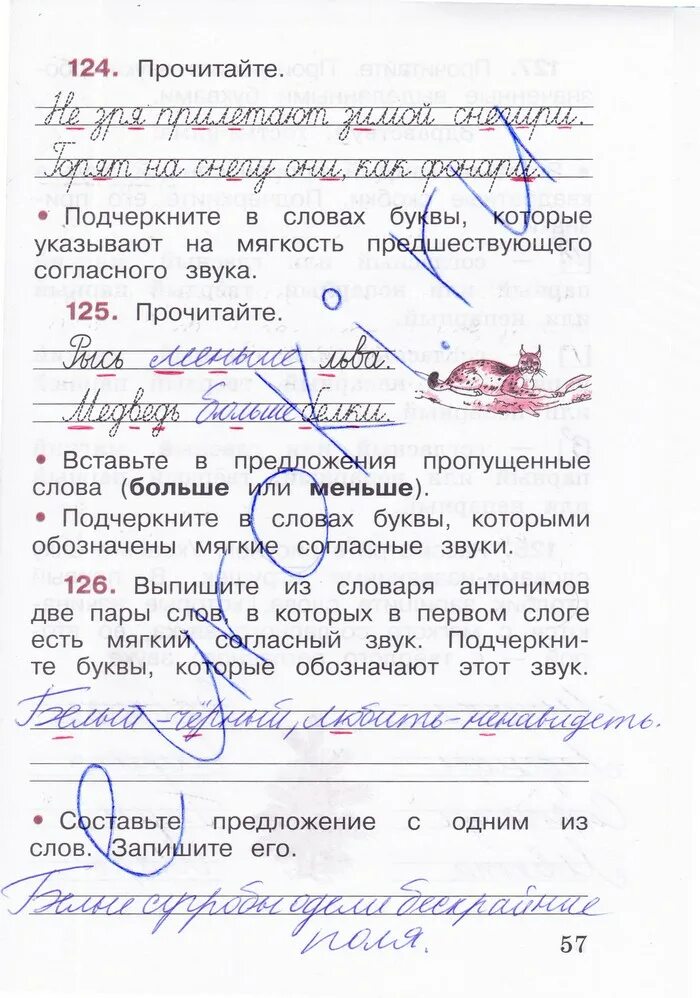 124. Прочитайте.
Не зря прилетают зимой снегири.
Горят на снегу они, как фонари.
• Подчеркните в словах буквы, которые
указывают на мягкость предшествующего
согласного звука.
125. Прочитайте.
Рысь меньше льва.
Медведь больше белки.
• Вставьте в предложения пропущенные
слова (больше или меньше).
• Подчеркните в словах буквы, которыми
обозначены мягкие согласные звуки.
126. Выпишите из словаря антонимов
две пары слов, в которых в первом слоге
есть мягкий согласный звук. Подчеркни-
те буквы, которые обозначают этот звук.
Белый - чёрный, любить - ненавидеть.
• Составьте предложение с одним из
слов. Запишите его.
Белые сугробы одели бескрайние
поля.
57